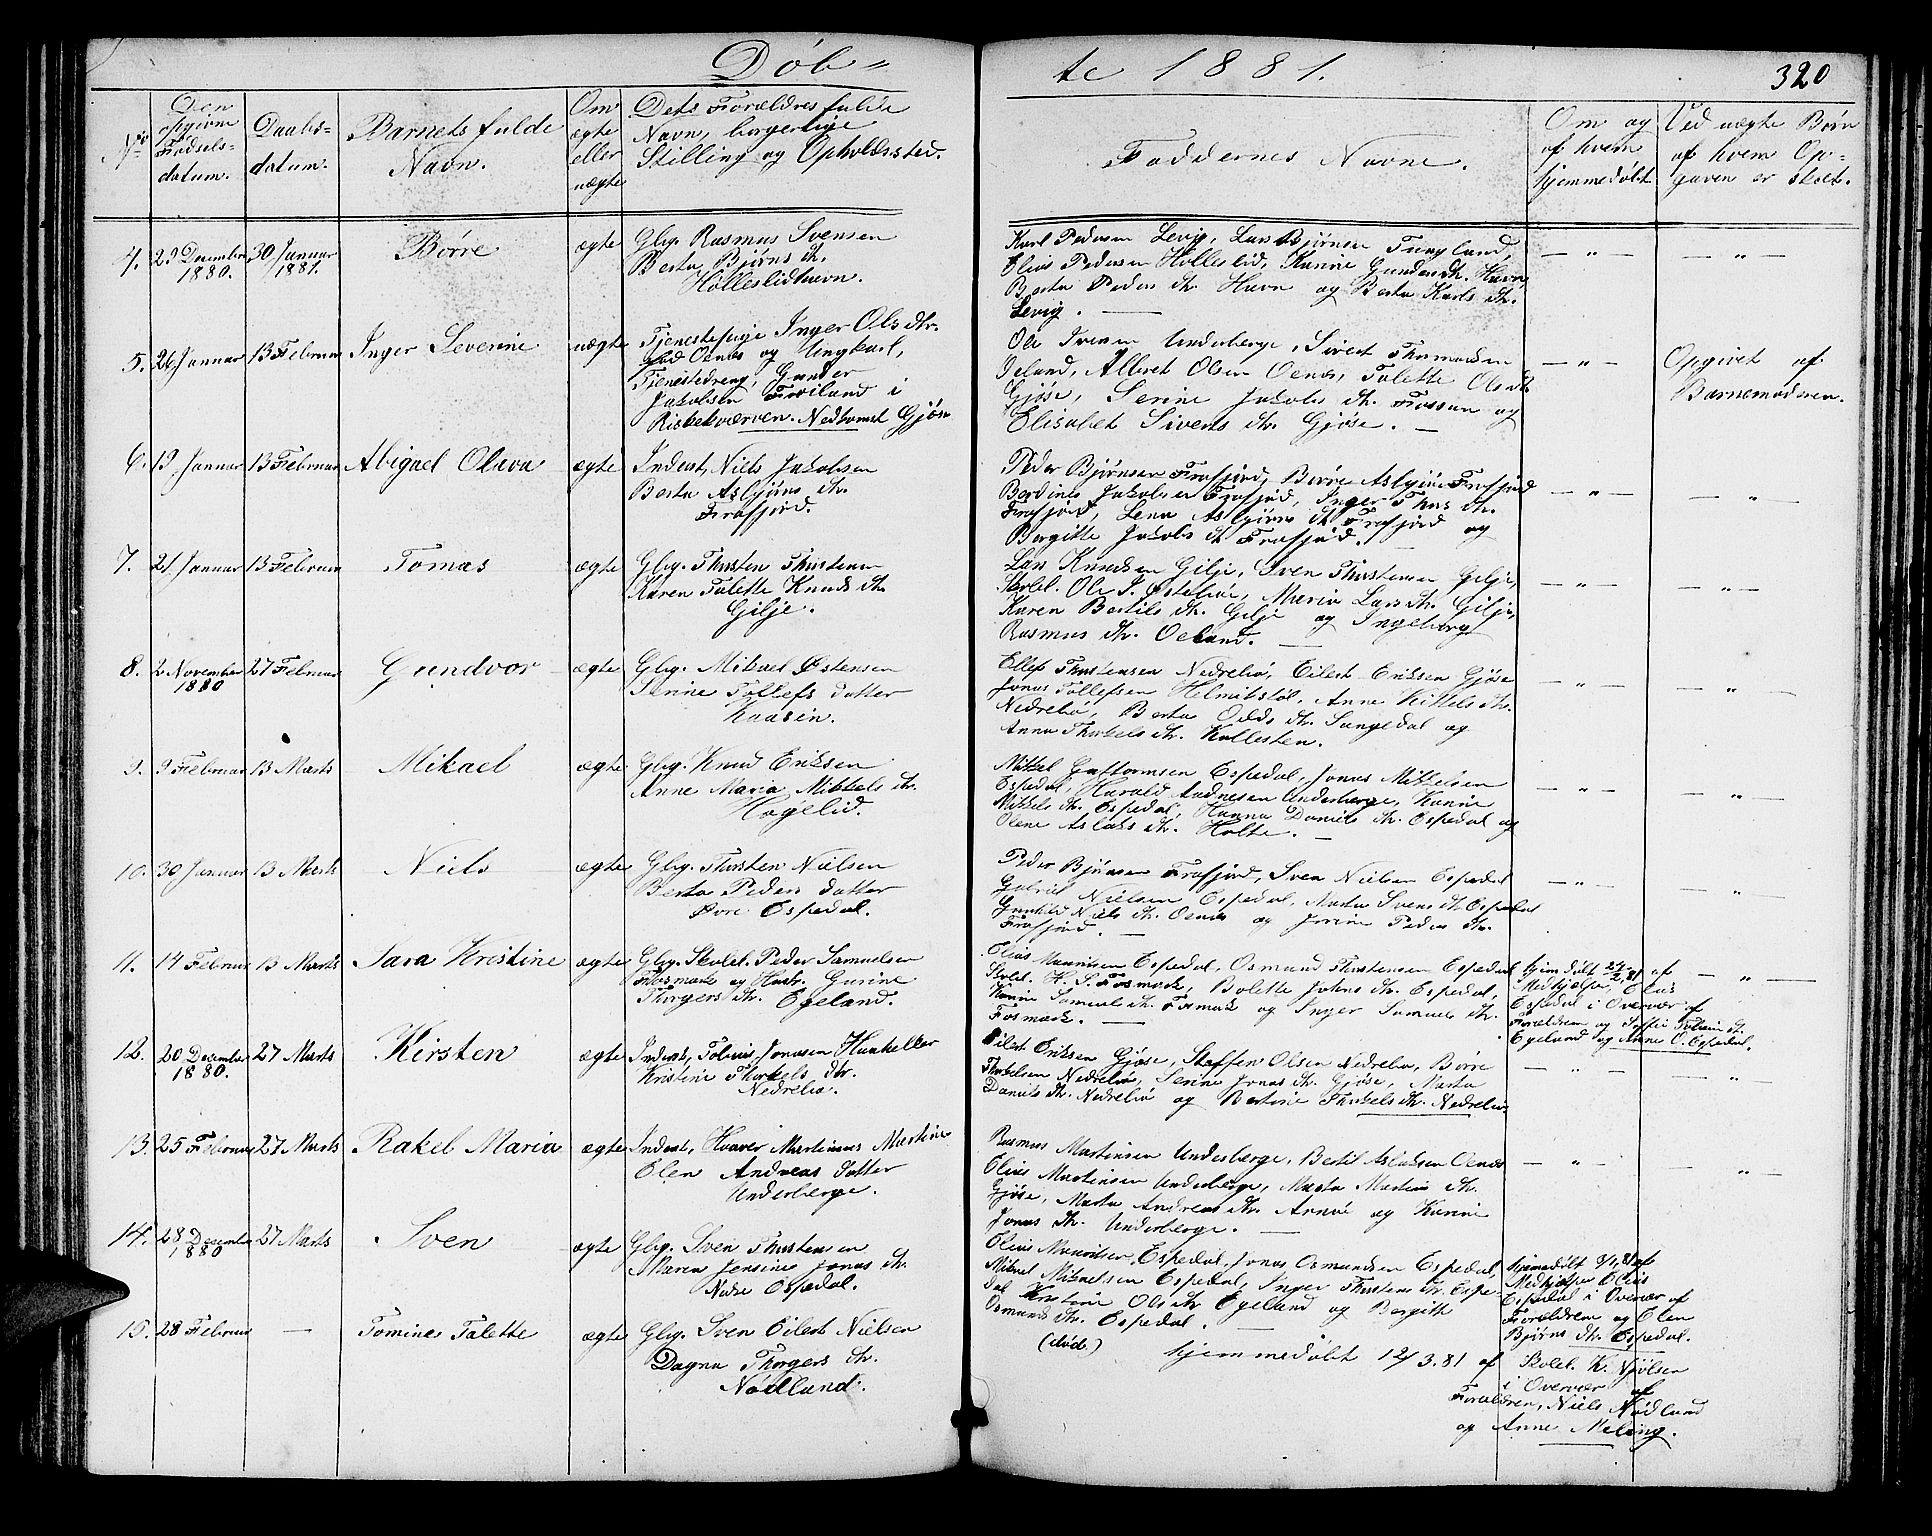 Døb=
te 1881.
320
No
Den opgivne Fødsels-datum.
Daabs-datum.
Barnets fulde Navn.
Om ægte eller uægte
Dets Forældres fulde Navn, borgerlige Stilling og Opholdssted.
Faddernes Navne.
Om og af hvem hjemmedøbt
Ved uægte Børn af hvem Op-gaven er skeet.
4. 29 December 1880. 30 Januar 1881. Børre ægte
Gbg. Rasmus Svensen
Berta Bjørns dt.
Holleslidhavn.
Karl Pedersen Levig, Lars Bjørnsen Fuglund,
Elias Pedersen Holleslid, Karine Gundersdt. Havn,
Berta Peders dt. Havn og Berta Karls dt.
Levig. —
— " — — " —
5. 26 Januar 13 Februar Inger Severine uægte
Tjenestepige Inger Ols dtr.
Oenæs og Ungkarl,
Tjenestedreng, Gunder
Jakobsen Frøiland i
Risbekværven. Nedkomst Gjøse
Ole Iversen Underberge, Sivert Thomassen
Oeland, Albret Olsen Oenæs, Talette Olsdt
Gjøse, Serine Jakobs dt. Fossan og
Elisabet Sivers dt. Gjøse. —
— " —
Opgivet af
Barnemoderen.
6. 19 Januar 13 Februar Abigael Olava ægte
Inderst, Niels Jakobsen
Berta Asbjørns dt.
Frafjord.
Peder Bjørnsen Frafjord, Børre Asbjørns Frafjord
Berdines Jakobsen Frafjord, Inger Thors dt.
Frafjord, Lena Asbjørns dt Frafjord og
Bergitte Jakobs dt Frafjord. —
— " — — " —
7. 21 Januar 13 Februar Tomas ægte
Gbg. Thorsten Thorstensen
Karen Talette Knuds dt.
Gilje.
Lars Knudsen Gilje, Sven Thorstensen Gilje,
Skolel. Ole J. Østebø, Maria Lars dt. Gilje,
Karen Bertils dt. Gilje og Ingeborg
Rasmus dt. Oeland. —
— " — — " —
8. 2 November 1880 27 Februar Gundvor ægte
Gbg. Mikael Østensen
Serine Tollefs datter
Kaasen.
Ellef Thorstensen Nedrebø, Eilert Eriksen Gjøse
Jonas Tollefsen Helmikstøl, Anne Kittels dt.
Nedrebø, Berta Odds dt. Sangedal og
Anna Thorkels dt. Kallesten.
— " — — " —
9. 9 Februar 13 Marts Mikael ægte
Gbg. Knud Eriksen
Anne Maria Mikkels dt.
Hagelid.
Mikkel Guttormsen Espedal, Jonas Mikkelsen
Espedal, Harald Andnesen Underberge, Karine
Mikkels dt. Espedal, Hanna Daniels dt. Espedal og
Olene Aslaks dt. Holte. —
— " — — " —
10. 30 Januar 13 Marts Niels ægte
Gbg. Thorsten Nielsen
Berta Peders datter
Øvre Espedal.
Peder Bjørnsen Frafjord, Sven Nielsen Espedal
Gabriel Nielsen Espedal, Marta Svens dt Espedal
Gunhild Niels dt. Oenæs og Jorine Peders dt.
Frafjord. —
— " — — " —
11. 14 Februar 13 Marts Sara Kristine ægte
Gbg. Skolel. Peder Samuelsen
Fosmark og Hustr. Gurine
Thorgers dt. Egeland.
Elias Mauritsen Espedal, Osmund Thorstensen Espedal
Skolel. H. S. Fosmark, Bolette Johns dt. Espedal,
Karine Samuels dt. Fosmark og Inger Samuels dt.
Fosmark. —
hjemdøbt 24/2 81 af
Medhjælper, Elias
Espedal i Overvær af
Forældrene og Sofie Tobias dt.
Egeland og Anne O. Espedal.
— " —
12. 20 December 1880. 27 Marts Kirsten ægte
Inderst, Tobias Jonasen Haukelier
Kristine Thorkels dtr.
Nedrebø.
Eilert Eriksen Gjøse, Staffen Olsen Nedrebø, Børre
Thorkelsen Nedrebø, Serine Jonas dt. Gjøse, Marta
Daniels dt. Nedrebø og Bertine Thorkels dt. Nedrebø
— " — — " —
13. 25 Februar 27 Marts Rakel Maria ægte
Inderst, Haaver Martinius Martins
Elen Andreas datter
Underberge.
Rasmus Martinsen Underberge, Bertil Aslaksen Oenæs
Elias Martinsen Underberge, Marta Martins dt.
Gjøse, Marta Andreas dt. Arnøi og Karine
Jonas dt. Underberge. —
— " — — " —
14. 28 Desember 1880 27 Marts Sven ægte
Gbg. Sven Thorstensen
Maria Jensine Jonas dt.
Nedre Espedal.
Elias Mauritsen Espedal, Jonas Osmundsen Espedal,
Mikael Mikaelsen Espedal, Inger Thorstens dt. Espe
dal Kristine Ols dt. Egeland og Bergitte
Osmunds dt. Espedal. —
hjemmedøbt 3/1, 81 af
Medhjælper Elias
Espedal i Overvær af
Forældrene og Elen
Bjørns dt. Espedal.
15. 28 Februar — Tomine Talette ægte
Gbg. Sven Eilert Nielsen
Dagna Thorgers dt.
Nødland.
(død.)
hjemmedøbt 12/3.81 af Skolel. K. Njølsen
i Overvær af
Forældren, Niels Nødland
og Anne Meling.